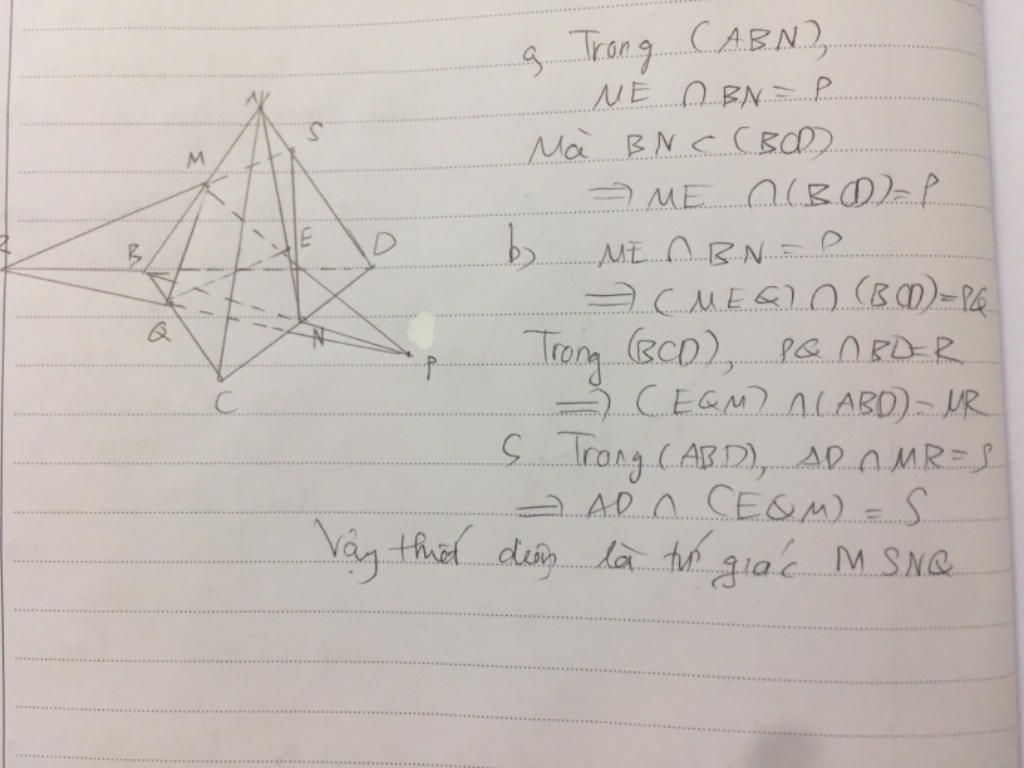 a, Trong (ABN),
ME ∩ BN = P
Mà BN ⊂ (BCD)
⇒ ME ∩ (BCD) = P
b) ME ∩ BN = P
⇒ (MEQ) ∩ (BCD) = PQ
Trong (BCD), PQ ∩ BD = R
⇒ (EQM) ∩ (ABD) = MR
S Trong (ABD), AD ∩ MR = S
⇒ AD ∩ (EQM) = S
Vậy thiết diện là tứ giác MSNQ
A
S
M
E
D
B
R
Q
N
P
C